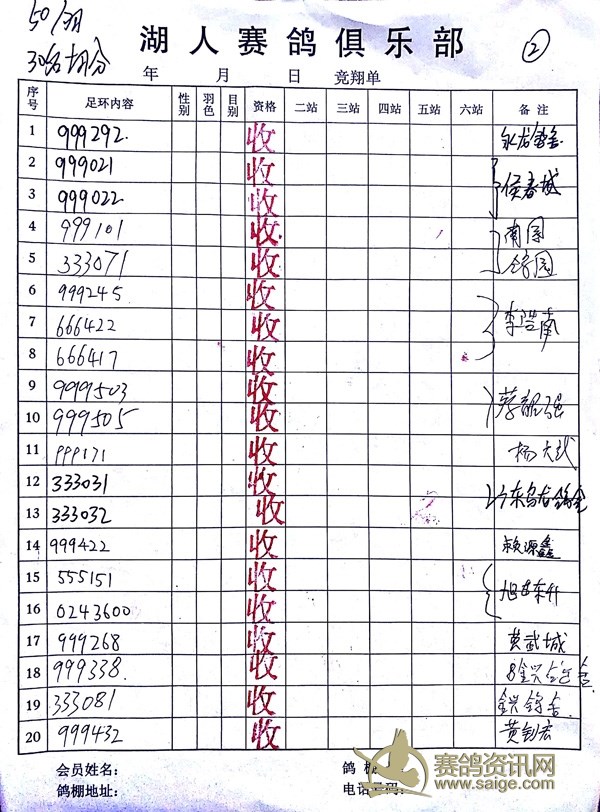 50/羽
30名切分
湖人赛鸽俱乐部
②
年 月 日 竞翔单
序号 足环内容 性别 羽色 目别 资格 二站 三站 四站 五站 六站 备注
1 999292. 收
2 999021 收 侯春城
3 999022 收
4 999101 收 南国
5 333071 收 鸽园
6 999245 收
7 666422 收 李浩南
8 666417 收
9 9999503 收
10 999505 收
11 999171 收 杨大武
12 333031 收
13 333032 收
14 999422 收 赖源鑫
15 555151 收 旭日东升
16 0243600 收
17 999268 收 黄武城
18 999338. 收
19 333081 收
20 999432 收 黄剑宏
会员姓名: 鸽棚
鸽棚地址: 电话号码:
赛鸽资讯网
www.saige.com